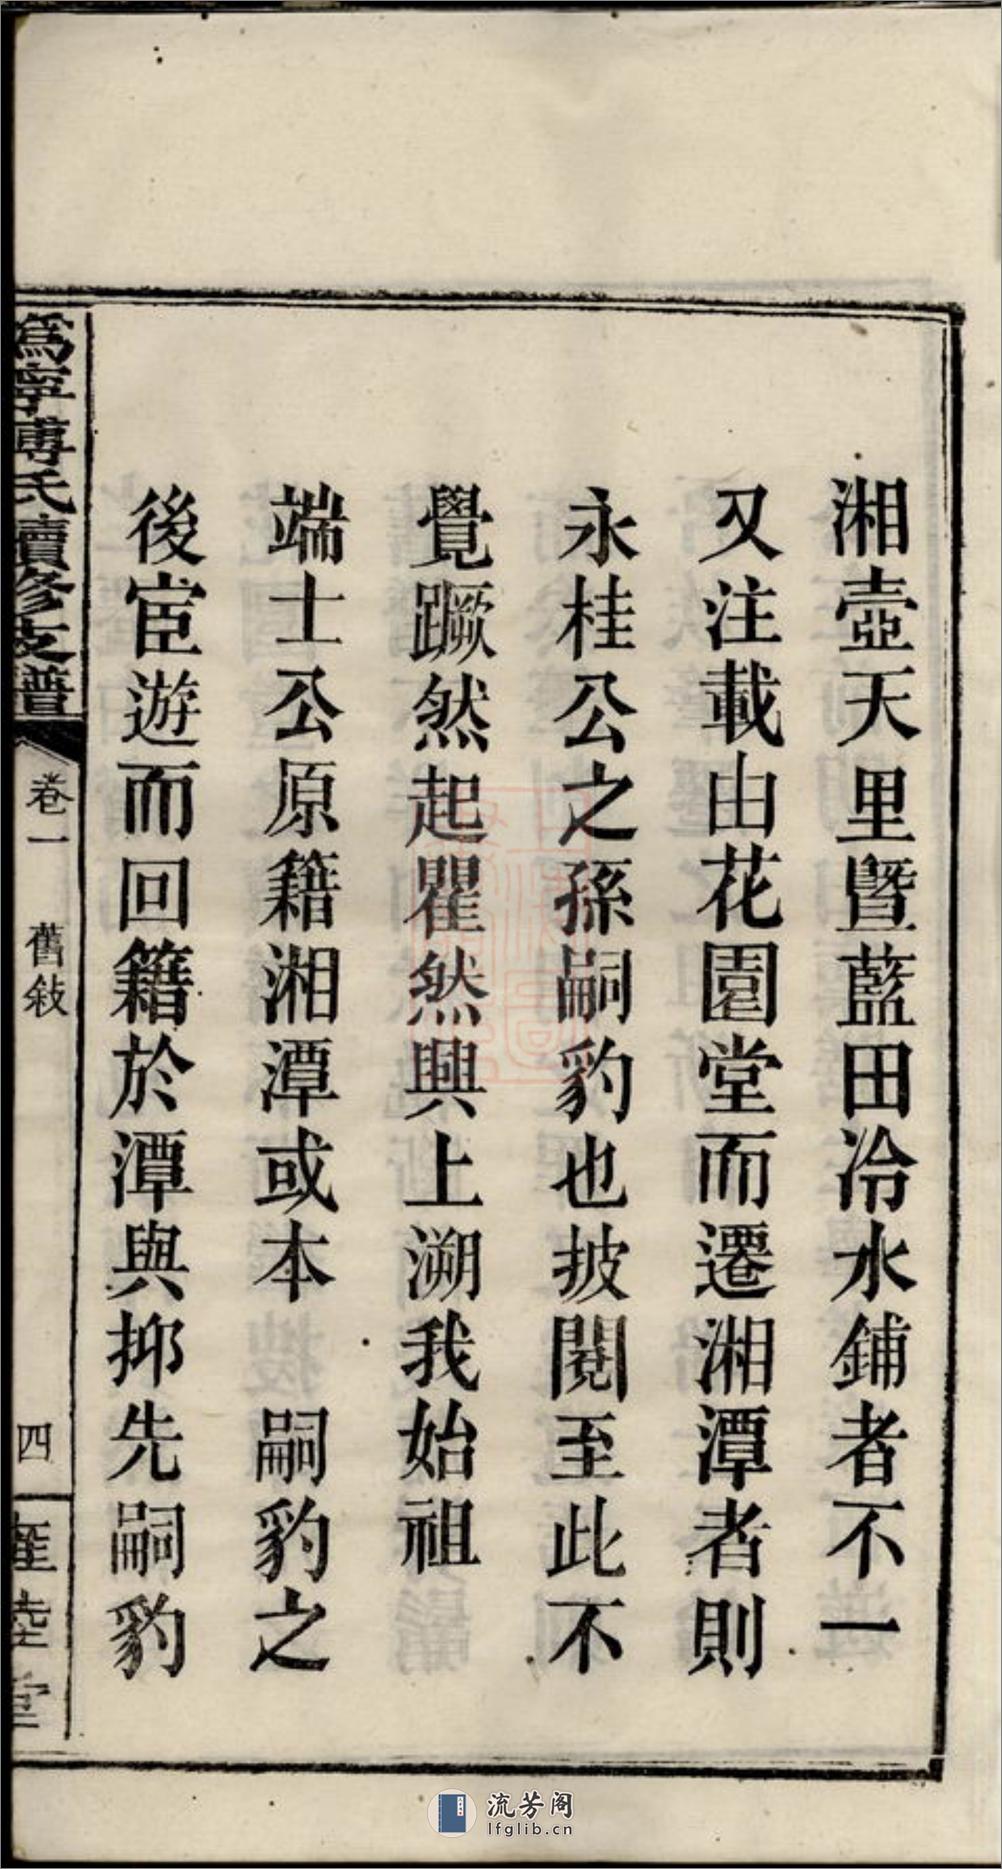 湘壺天里暨藍田冷水鋪者不一
又注載由花園堂而遷湘潭者則
永桂公之孫嗣豹也披閱至此不
覺蹶然起瞿然興上溯我始祖
端士公原籍湘潭或本 嗣豹之
後宦遊而回籍於潭與抑先嗣豹
溈寧傅氏續修支譜
卷一 舊敍
四
堂
流芳阁
lfglib.cn